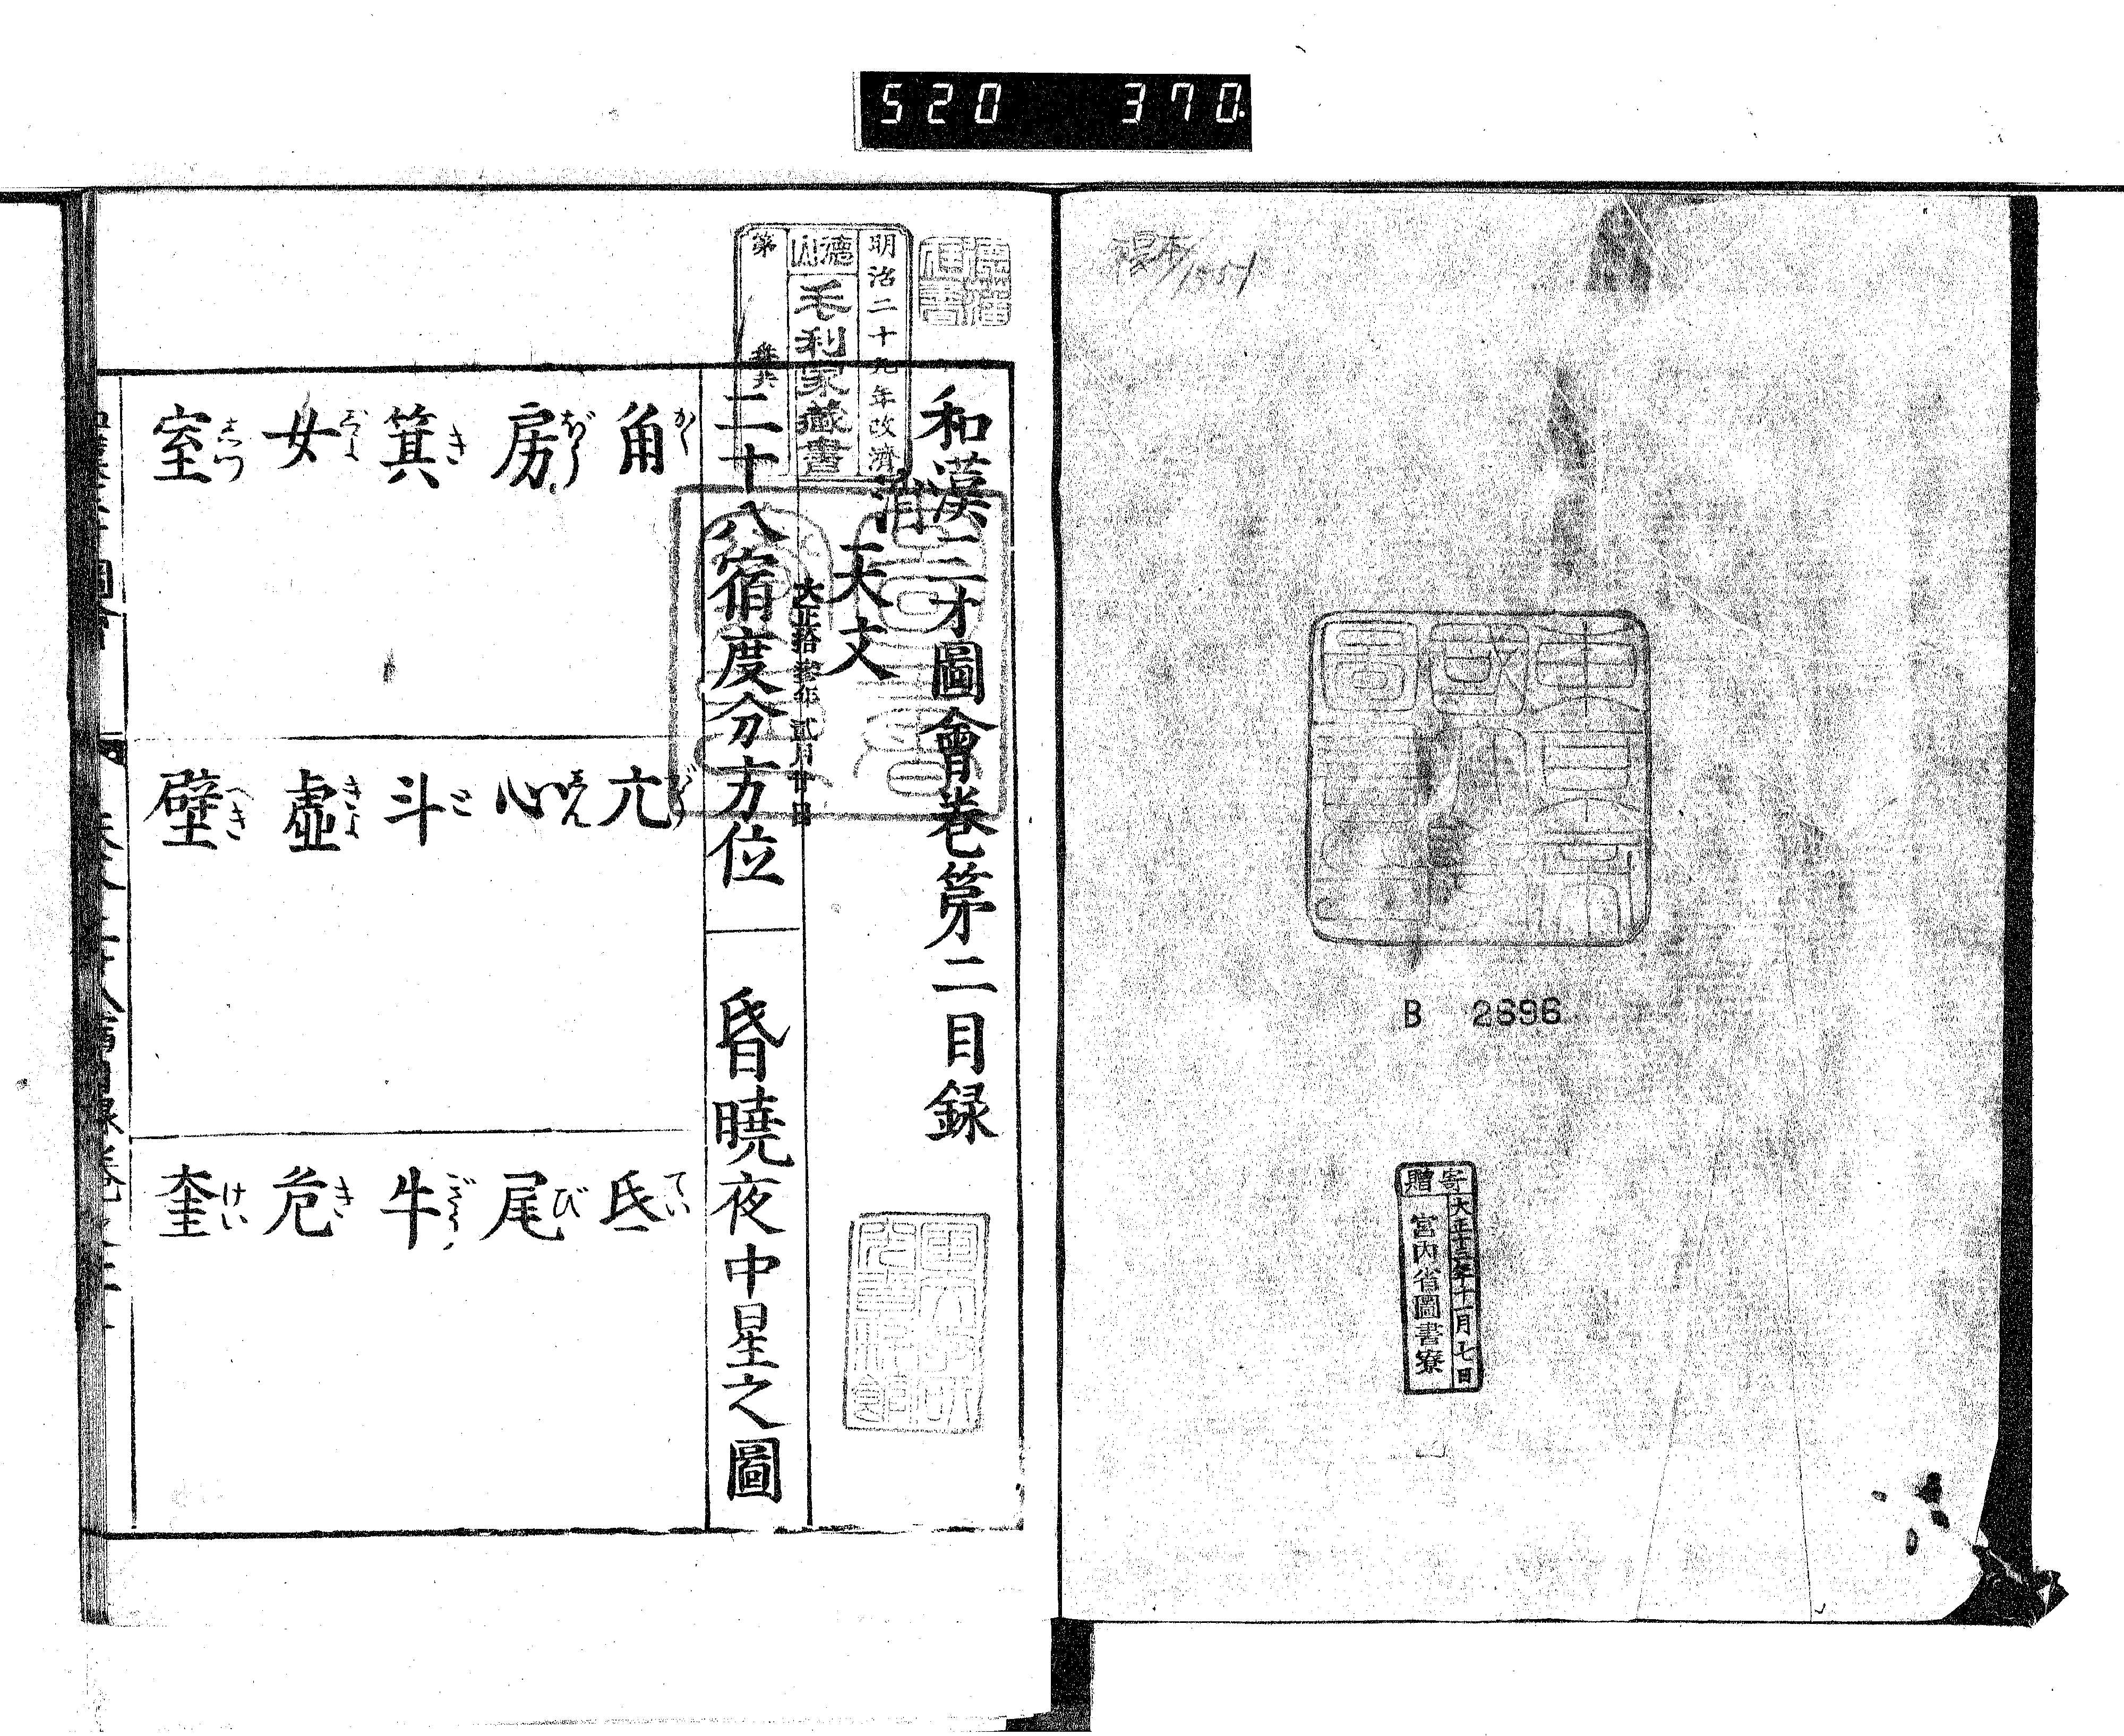 520 370
東京帝國大學圖書印
B 2696
寄贈
大正十三年十一月七日
宮内省圖書寮
明治二十九年改濟
德山
毛利家藏書
第
消
和漢三才圖會巻第二目録
天文
大正拾參年貳月廿日
二十八宿度分方位
昏曉夜中星之圖
角 かく
亢 かう
氐 てい
房 ばう
心 しん
尾 び
箕 き
斗 と
牛 ぎう
女 ぢよ
虚 きよ
危 き
室 しつ
壁 へき
奎 けい